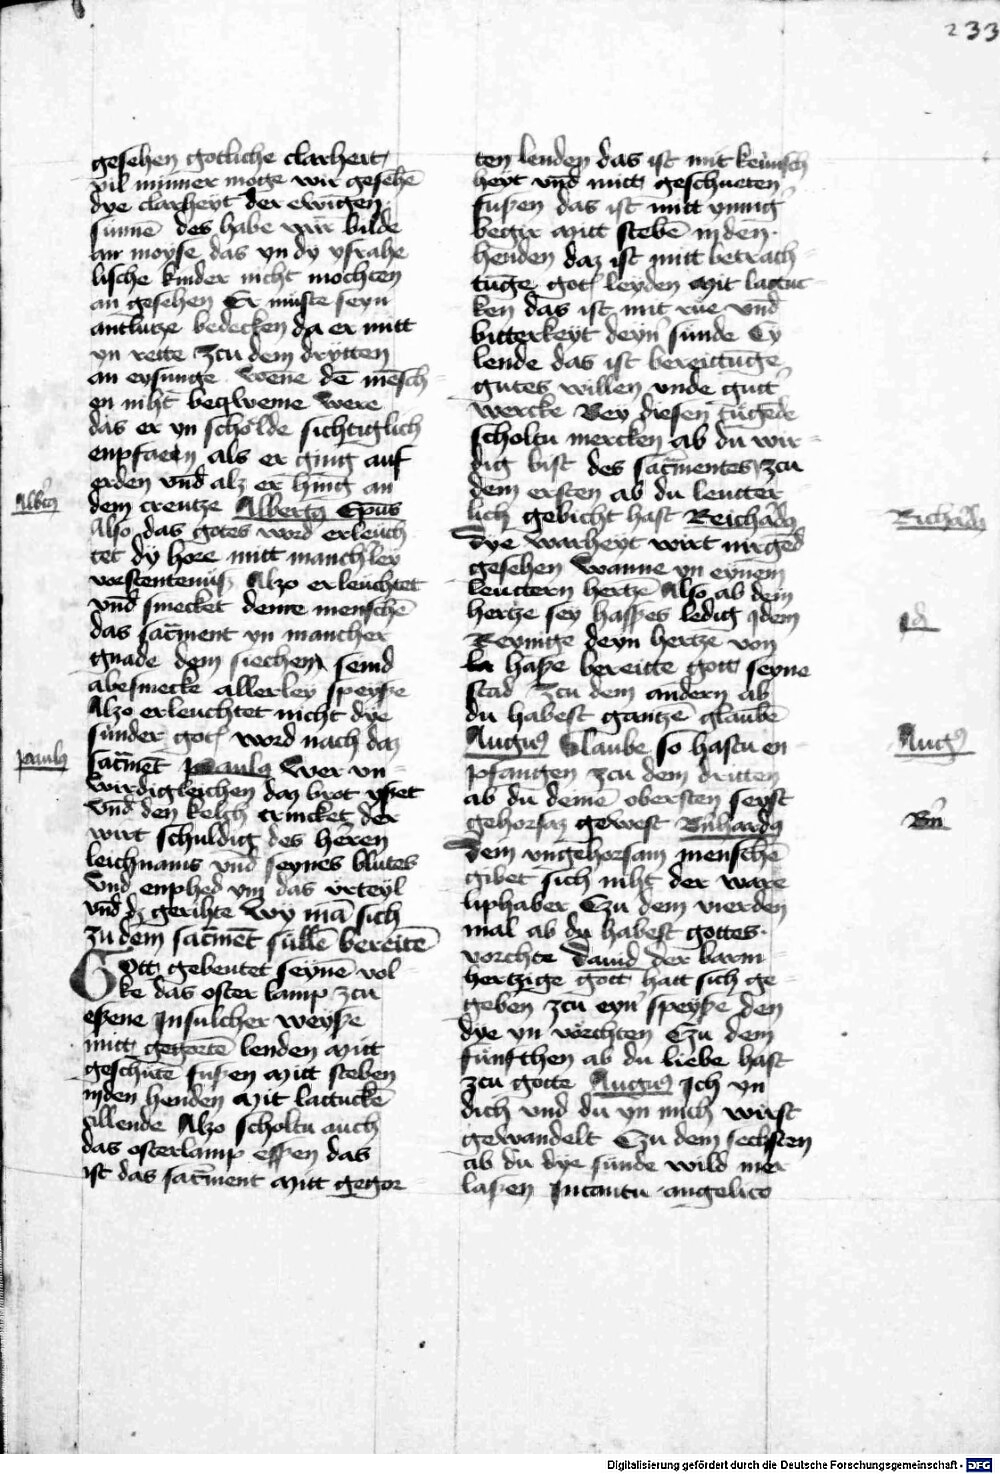 233
gesehen gotliche clarheit
vil mÿnner moge wir gesehē
dye clarheyt der ewigen
sunnē des habe wir bilde
an moyse das yn dy ysrahe
lische kinder nicht mochten
an gesehen Er muste seyn
antlutze bedecken da er mitt
yn rette zcu dem drytten
an eysunge wēne dē mēsch
en niht beqweme were
das er yn scholde sichtiglich
enpfaen als er ging auf
erden vnd alz er hing an
dem creutze Albertꝯ Epūs
Also das gotes word erleuch
tet dy hore mitt manchley
vorstentenusz Alzo erleuchtet
vnd smecket deme menschē
das sac̄ment yn mancher
gnade dem siechem seind
abesmecke allerley speysze
Alzo erleuchtet nicht dye
sunder gotꝭ word nach daz
sac̄mēt Paulꝯ Wer vn
wirdigleichen daz brot ysset
vnd den kelch trincket der
wirt schuldig des heren
leichnams vnd seynes blutes
vnd enphed ym das vrteyl
vnd dz gerihte Wy mā sich
zu dem sac̄mēt sullē bereitē
Gott gebeutet seynē vol
ke das oster lamp zcu
eszene Insulcher weysze
mitt gegortē lenden Mitt
geschutē fuszen Mitt steben
inden henden Mit lattuckē
Ellende Alzo scholtu auch
das osterlamp essen das
ist das sac̄ment Mitt gegor
Albertꝯ
Paulꝯ
ten lenden das ist mit keusch
heyt vnd mitt geschueten
fuszen das ist mitt ynnig
begir Mitt stebē in den
henden daz ist mitt betrach
tūge gotꝭ leyden Mit lattuc
ken das ist mit rue vnd
bitterkeyt deyn sunde Ey
lende das ist bereittūge
gutes willen vnde gutt
wercke Bey diesen tugēde
scholtu mercken ab du wir
dig bist des sac̄mentes zcu
dem ersten ab du leutter
lich gebicht hast Reichardꝯ
Dye warheyt wirt nirgēd
gesehen wanne yn eynem
leuttern hertzē Also ab dem
hertze sey hasszes ledig Idem
Reynige deyn hertze von
hasze bereitte gott seyne
stad Zcu dem andern ab
du habest gantzē glaubē
Augusꝯ Glaube so hastu en
pfangen zcu dem dritten
ab du deinē obersten seyst
gehorsaz gewest Bn̄hardꝯ
Dem vngehorsam menschē
gibet sich niht der ware
liphaber Czu dem vierden
mal ab du habest gottes
vorchte Dauid Der barm
hertzige gott hatt sich ge
geben zcu eyn speysze den
dye yn vorchten Czu dem
funfthen ab du liebe hast
zcu gotte Augusꝯ Ich yn
dich vnd du yn mich wirst
gewandelt Czu dem sechsten
ab du dye sunde wild mer
laszen Incantu angelico
Richardꝯ
Id
Augꝯ
Bn̄
Digitalisierung gefördert durch die Deutsche Forschungsgemeinschaft - DFG